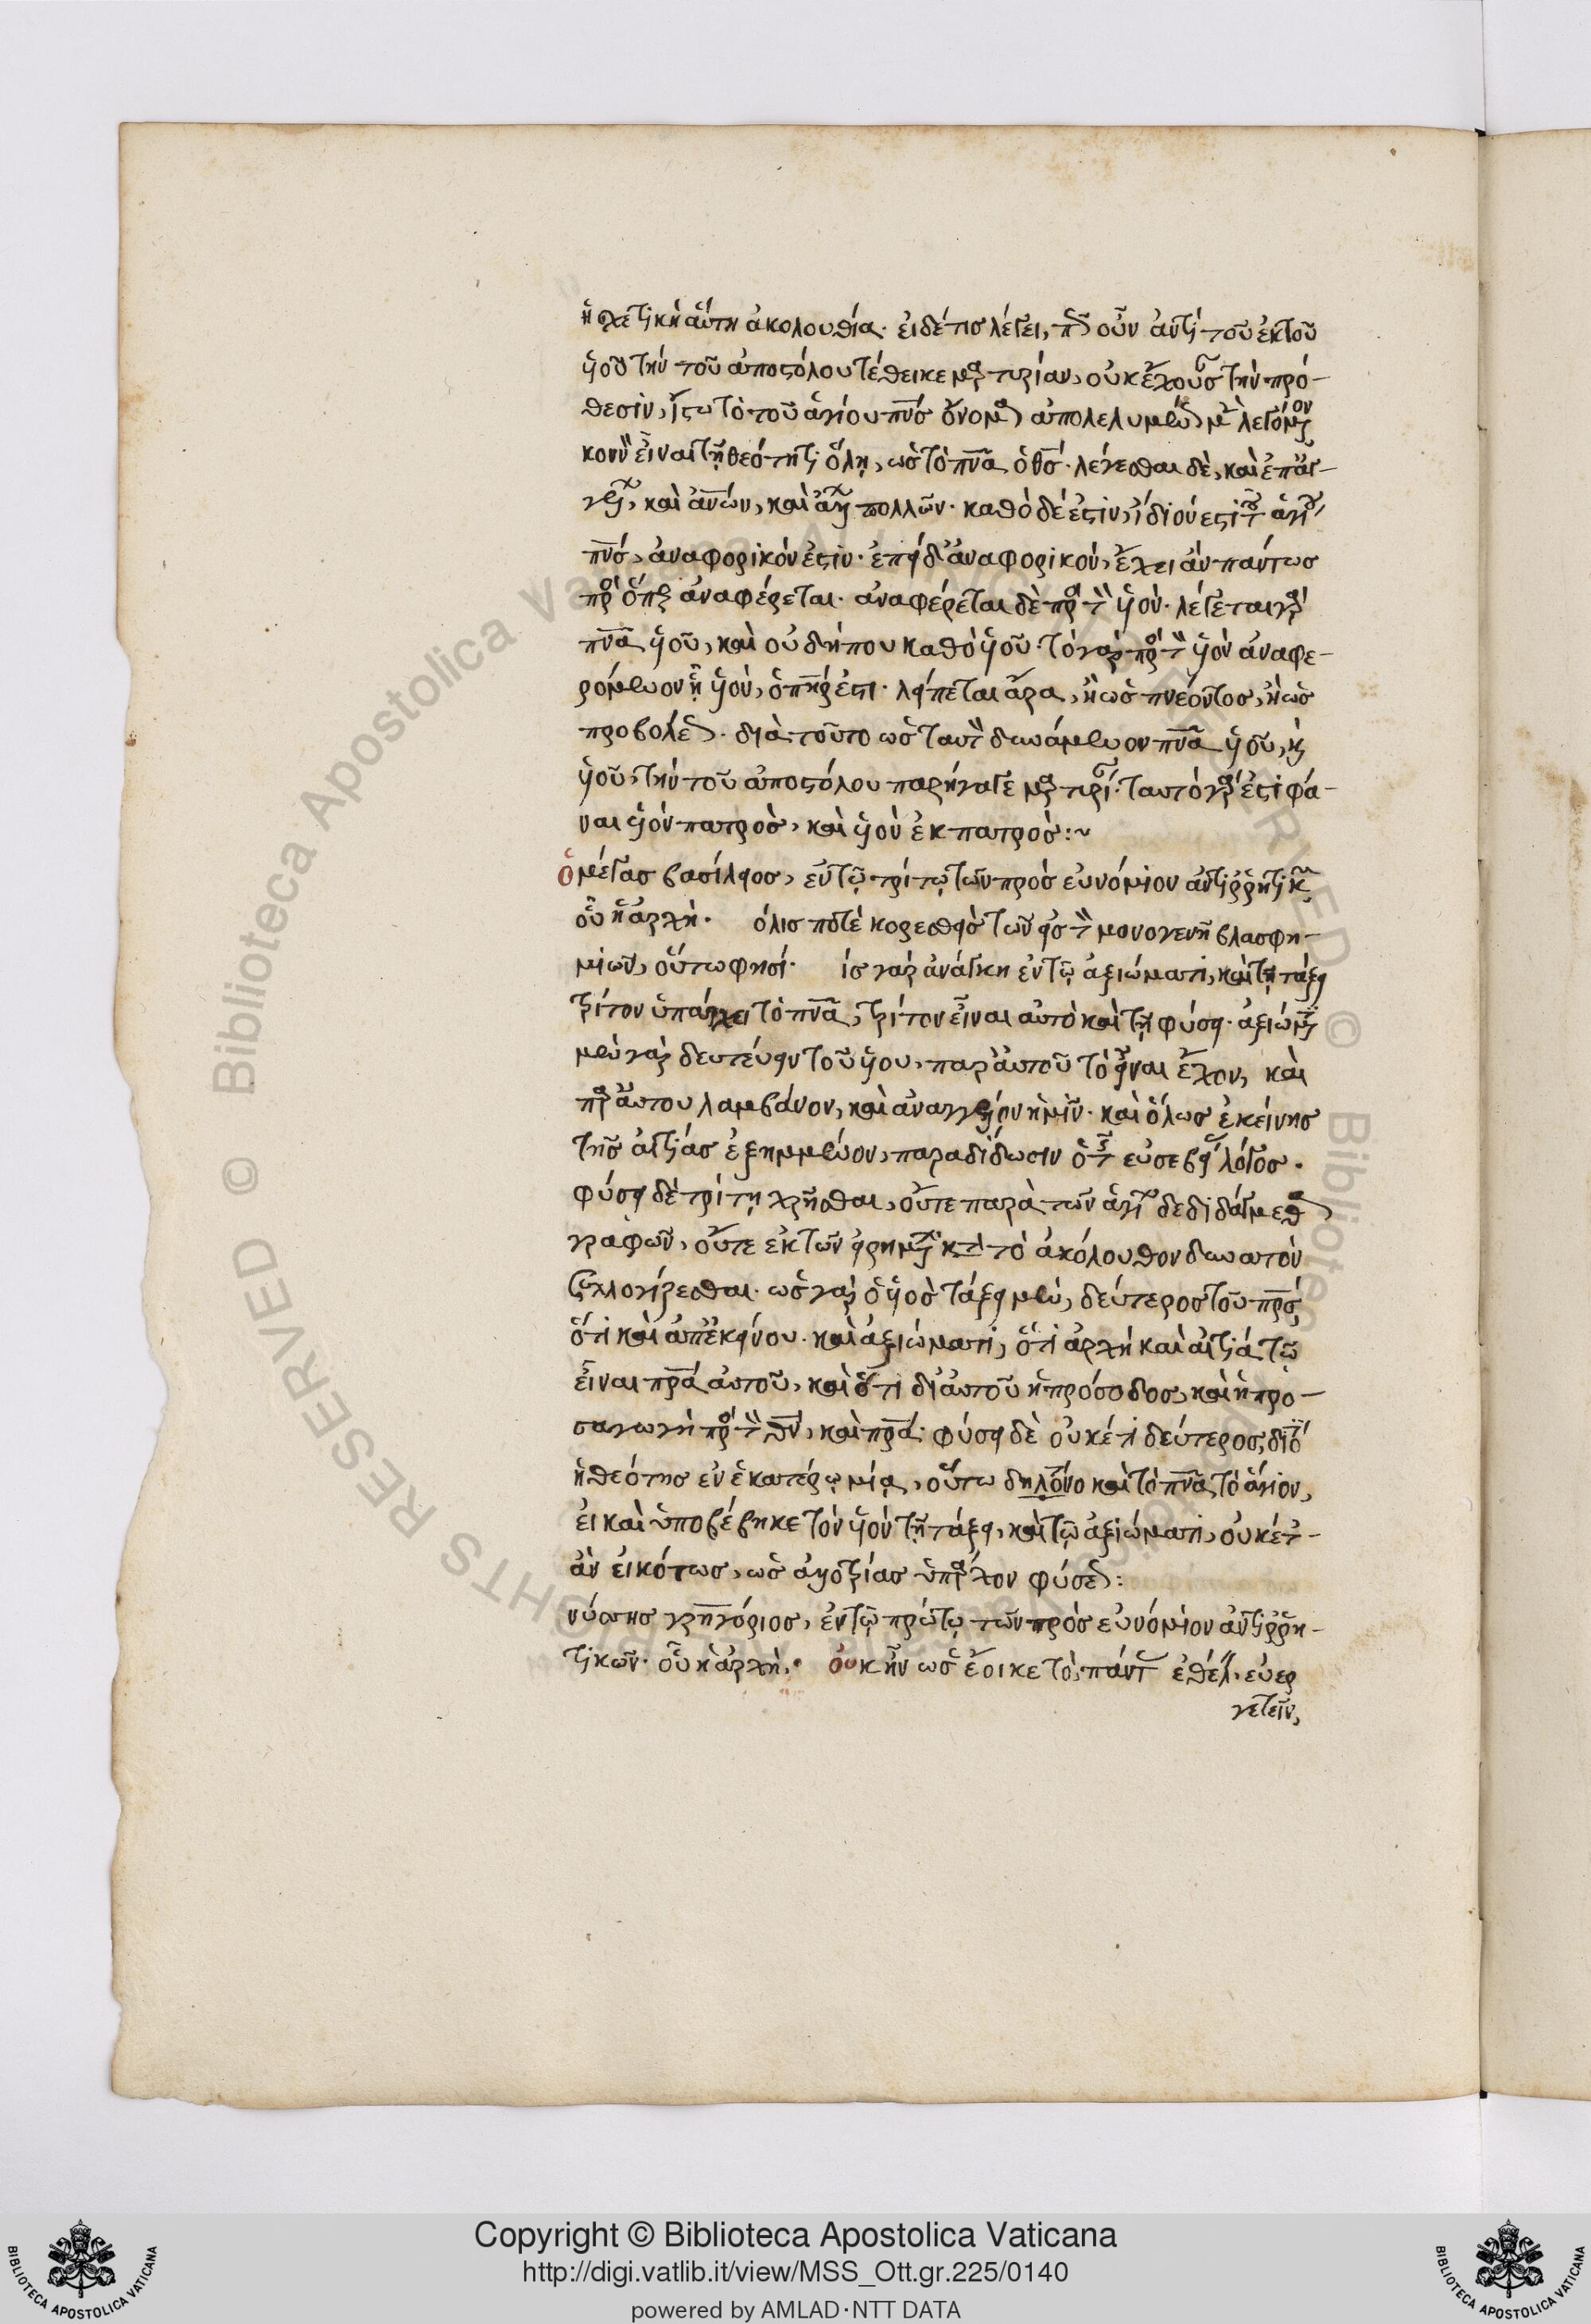 ἡ σχετικὴ αὕτη ἀκολουθία. εἰ δέ τις λέγει, πῶς οὖν ἀντὶ τοῦ ἐκ τοῦ
υἱοῦ τὴν τοῦ ἀποστόλου τέθεικε μαρτυρίαν, οὐκ ἔχουσαν τὴν πρό-
θεσιν, ἴστω τὸ τοῦ ἁγίου πνς ὄνομα ἀπολελυμένως μὲν λεγόμενον
κοινὸν εἶναι τῇ θεότητι ὅλῃ, ὡς τὸ πνα ὁ θς. λέγεσθαι δὲ, καὶ ἐπ' ἀγ-
γέλων, καὶ ἀνων, καὶ ἄλλων πολλῶν. καθὸ δέ ἐστιν, ἴδιόν ἐστι τοῦ ἁγίου
πνς, ἀναφορικόν ἐστιν. ἐπεὶ δ' ἀναφορικὸν, ἔχει ἂν πάντως
πρὸς ὅπερ ἀναφέρεται. ἀναφέρεται δὲ πρὸς τὸν υἱόν. λέγεται γὰρ
πνα υἱοῦ, καὶ οὐ δήπου καθὸ υἱοῦ. τὸ γὰρ πρὸς τὸν υἱὸν ἀναφε-
ρόμενον ἢ υἱὸν, ὁ πηρ ἐστι. λείπεται ἄρα, ἢ ὡς πνέοντος, ἢ ὡς
προβολέως. διὰ τοῦτο ὡς ταυτὸν δυνάμενον πνα υἱοῦ, καὶ
υἱοῦ, τὴν τοῦ ἀποστόλου παρήγαγε μαρτυρίαν. ταυτὸ γάρ ἐστι φά-
ναι υἱὸν πατρὸς, καὶ υἱὸν ἐκ πατρὸς:~
ὁ μέγας βασίλειος, ἐν τῷ τρίτῳ τῶν πρὸς εὐνόμιον ἀντιρρητικῶν
οὗ ἡ ἀρχή. ὀλις ποτὲ κορεσθεὶς τῶν εἰς τὸν μονογενῆ βλασφη-
μιῶν, οὕτω φησί. ίς γὰρ ἀνάγκη ἐν τῷ ἀξιώματι, καὶ τῇ τάξει
τρίτον ὑπάρχει τὸ πνα, τρίτον εἶναι αὐτὸ καὶ τῇ φύσει. ἀξιώματι
μὲν γὰρ δευτερεύειν τοῦ υἱοῦ, παρ' αὐτοῦ τὸ εἶναι ἔχον, καὶ
παρ' αὐτοῦ λαμβάνον, καὶ ἀναγγέλλον ἡμῖν. καὶ ὅλως ἐκείνης
τῆς αἰτίας ἐξημμένον, παραδίδωσιν ὁ τῆς εὐσεβείας λόγος.
φύσει δὲ τρίτῃ χρῆσθαι, οὔτε παρὰ τῶν ἁγίων δεδιδάγμεθα
γραφῶν, οὔτε ἐκ τῶν εἰρημένων κατὰ τὸ ἀκόλουθον δυνατὸν
συλλογίζεσθαι. ὡς γὰρ ὁ υἱὸς τάξει μὲν, δεύτερος τοῦ πρς,
ὅτι καὶ ἀπ' ἐκείνου. καὶ ἀξιώματι, ὅτι ἀρχὴ καὶ αἰτία τῷ
εἶναι πρα αὐτοῦ, καὶ ὅτι δι' αὐτοῦ ἡ πρόσοδος, καὶ ἡ προ-
σαγωγὴ πρὸς τὸν θν, καὶ πρα. φύσει δὲ οὐκέτι δεύτερος, διότι
ἡ θεότης ἐν ἑκατέρῳ μία, οὕτω δηλονότι καὶ τὸ πνα τὸ ἅγιον,
εἰ καὶ ὑποβέβηκε τὸν υἱὸν τῇ τάξει, καὶ τῷ ἀξιώματι, οὐκέτ'
ἂν εἰκότως, ὡς ἀλλοτρίας ὑπάρχον φύσεως:
νύσσης γρηγόριος, ἐν τῷ πρώτῳ τῶν πρὸς εὐνόμιον ἀντιρρη-
τικῶν. οὗ ἡ ἀρχή. οὐκ ἦν ὡς ἔοικε τὸ πάντας ἐθέλειν εὐερ
γετεῖν,
© Biblioteca Apostolica Vaticana
Copyright © Biblioteca Apostolica Vaticana
http://digi.vatlib.it/view/MSS_Ott.gr.225/0140
powered by AMLAD·NTT DATA
BIBLIOTECA APOSTOLICA VATICANA
BIBLIOTECA APOSTOLICA VATICANA